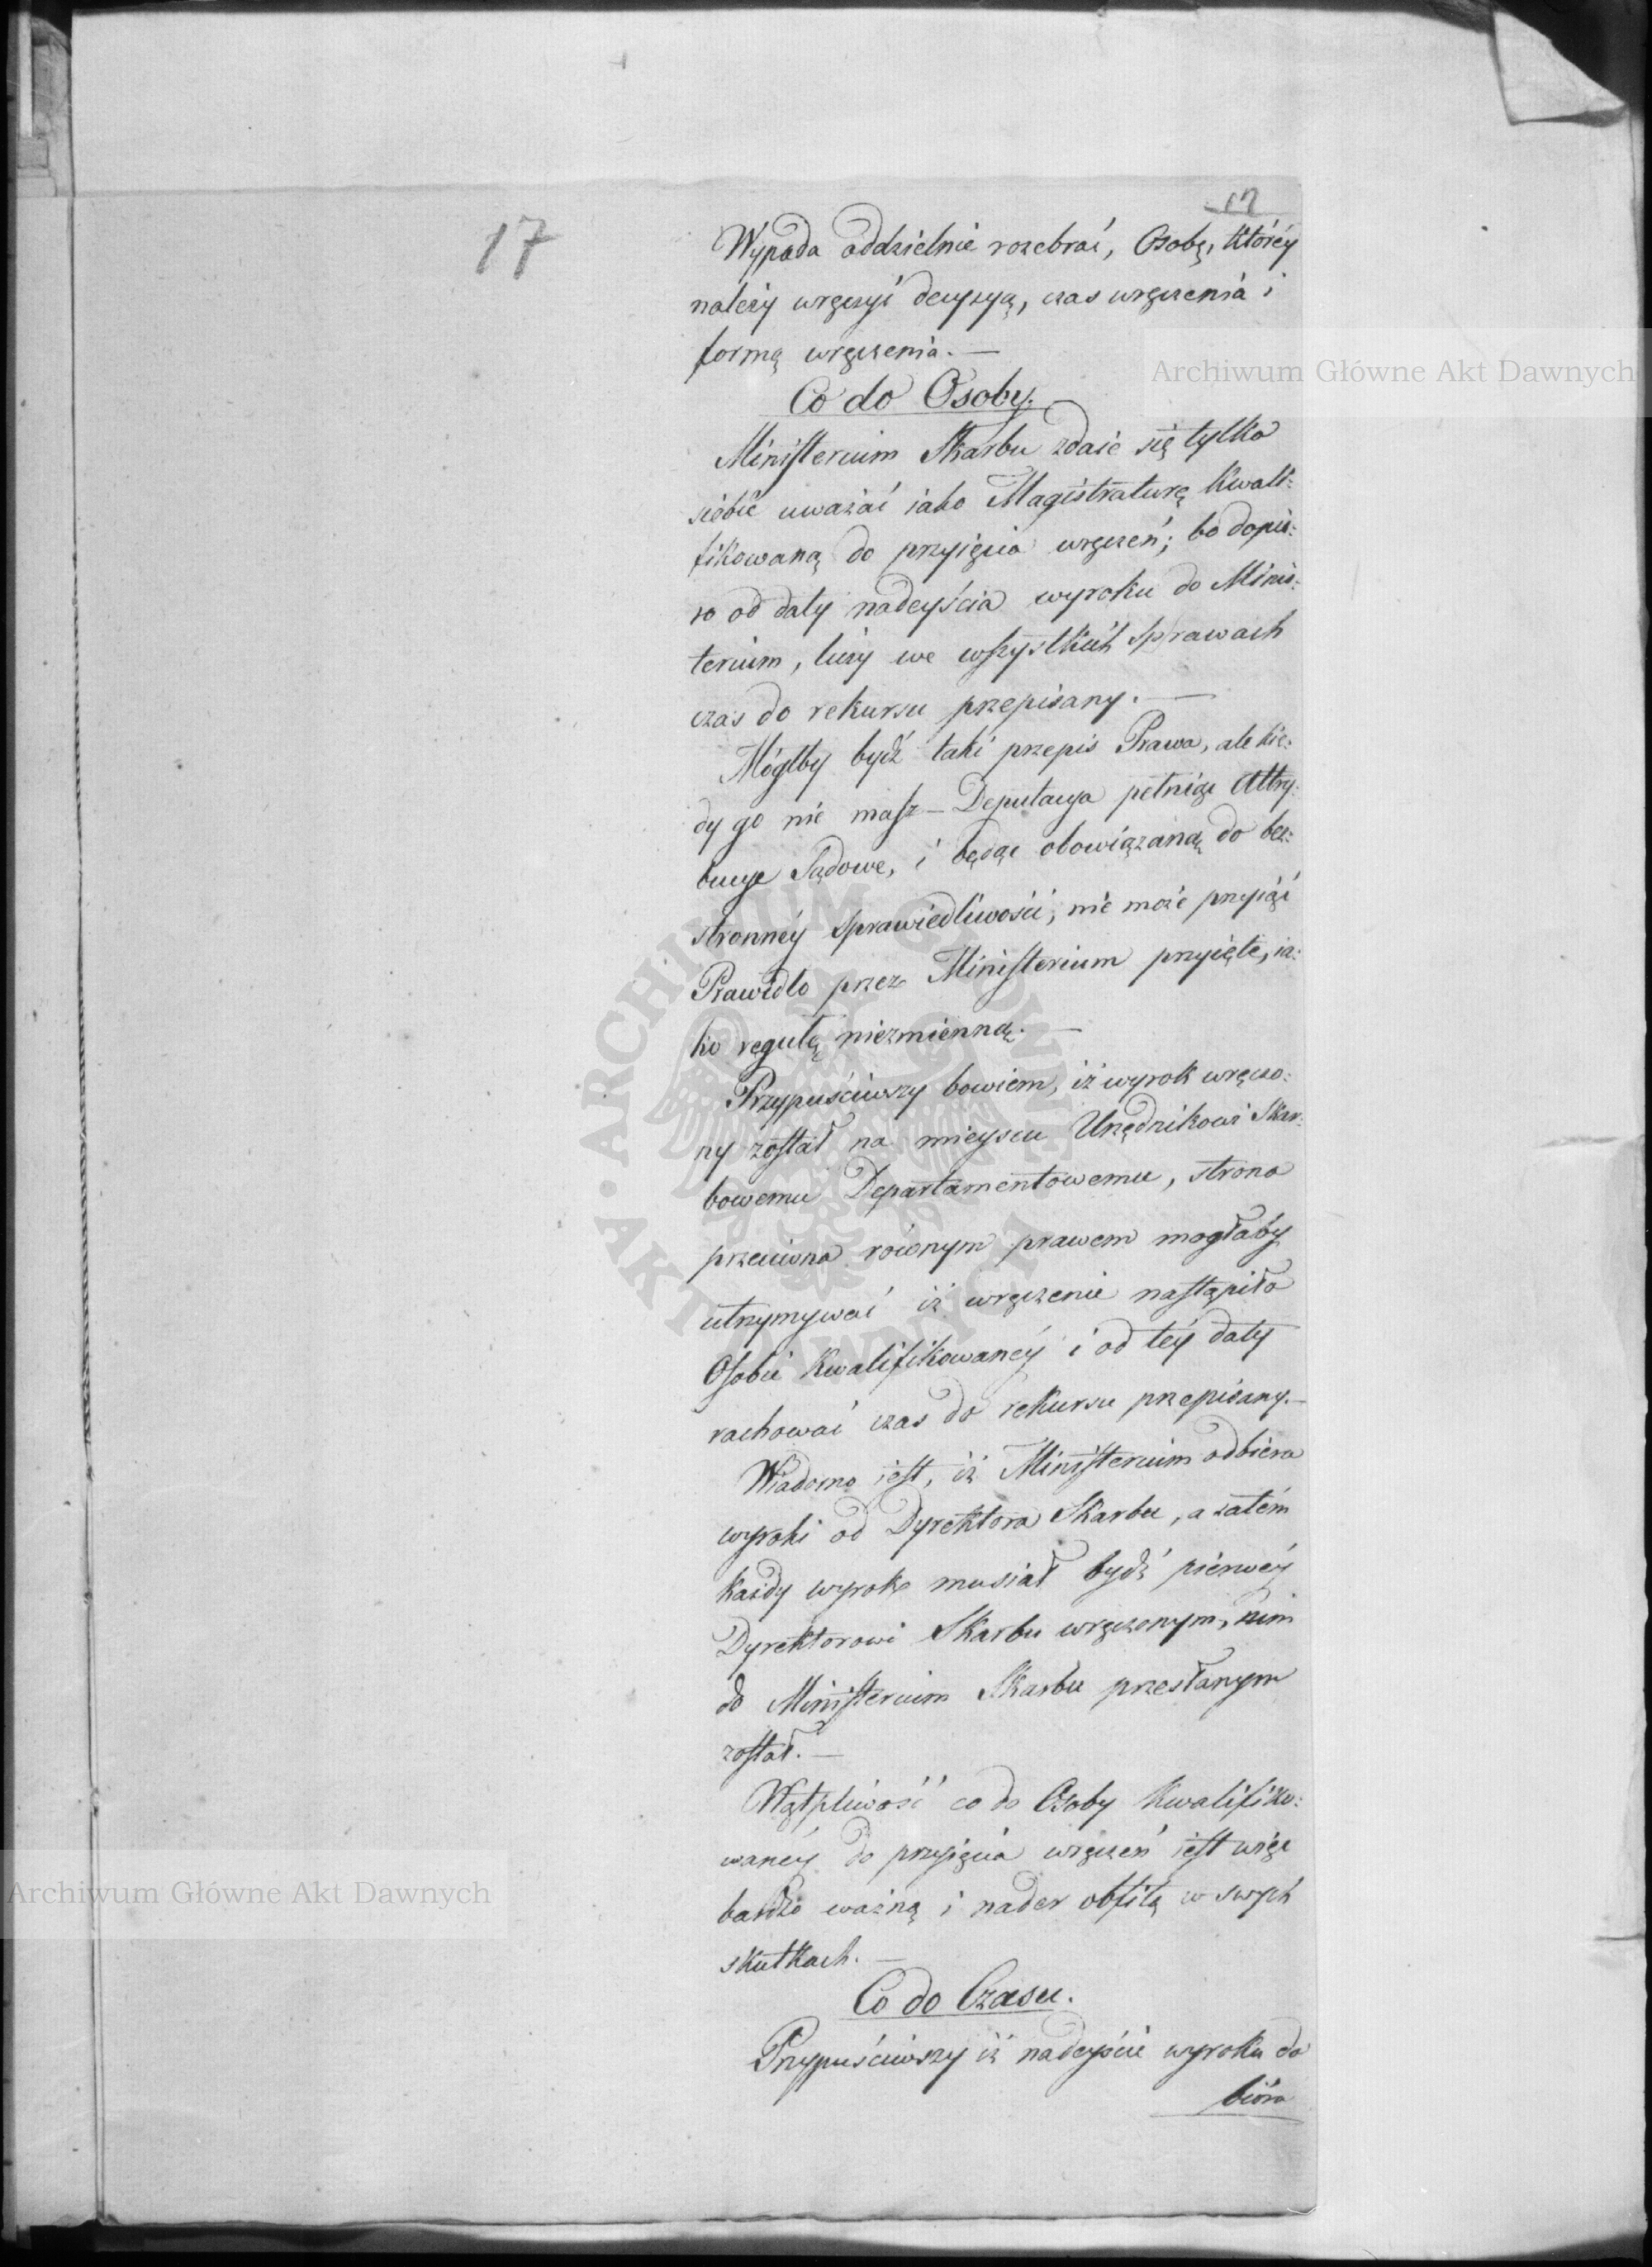 17
17
Wypada oddzielnie rozebrać, Osobę, któréy
należy wręczyć decyzyą, czas wręczenia i
formę wręczenia. —
Co do Osoby.
Ministerium Skarbu zdaie się tylko
siebie uważać iako Magistraturę kwali:
fikowaną do przyięcia wręczeń; bo dopie:
ro od daty nadeyścia wyroku do Minis:
terium, liczy we wszystkich sprawach
czas do rekursu przepisany. —
Mógłby bydź taki przepis Prawa, ale kie:
dy go nie masz — Deputacya pełniąc Attry:
bucye Sądowe, i będąc obowiązaną do bez:
stronnéy sprawiedliwości, nie może przyiąć
Prawidło przez Ministerium przyięte, ia:
ko regułę niezmienną. —
Przypuściwszy bowiem, iż wyrok wręczo:
ny został na mieyscu Urzędnikowi Skar:
bowemu Departamentowemu, strona
przeciwna równym prawem mogłaby
utrzymywać iż wręczenie nastąpiło
Osobie kwalifikowanéy i od téy daty
rachować czas do rekursu przepisany. —
Wiadomo iest, iż Ministerium odbiera
wyroki od Dyrektora Skarbu, a zatém
każdy wyrok musiał bydź pierwéy
Dyrektorowi Skarbu wręczonym, nim
do Ministerium Skarbu przesłanym
został. —
Wątpliwość co do Osoby kwalifiko:
wanéy do przyięcia wręczeń iest więc
bardzo ważną i nader obfitą w swych
skutkach. —
Co do Czasu.
Przypuściwszy iż nadeyście wyroku do
bióra
Archiwum Główne Akt Dawnych
Archiwum Główne Akt Dawnych
ARCHIWUM GŁÓWNE AKT DAWNYCH